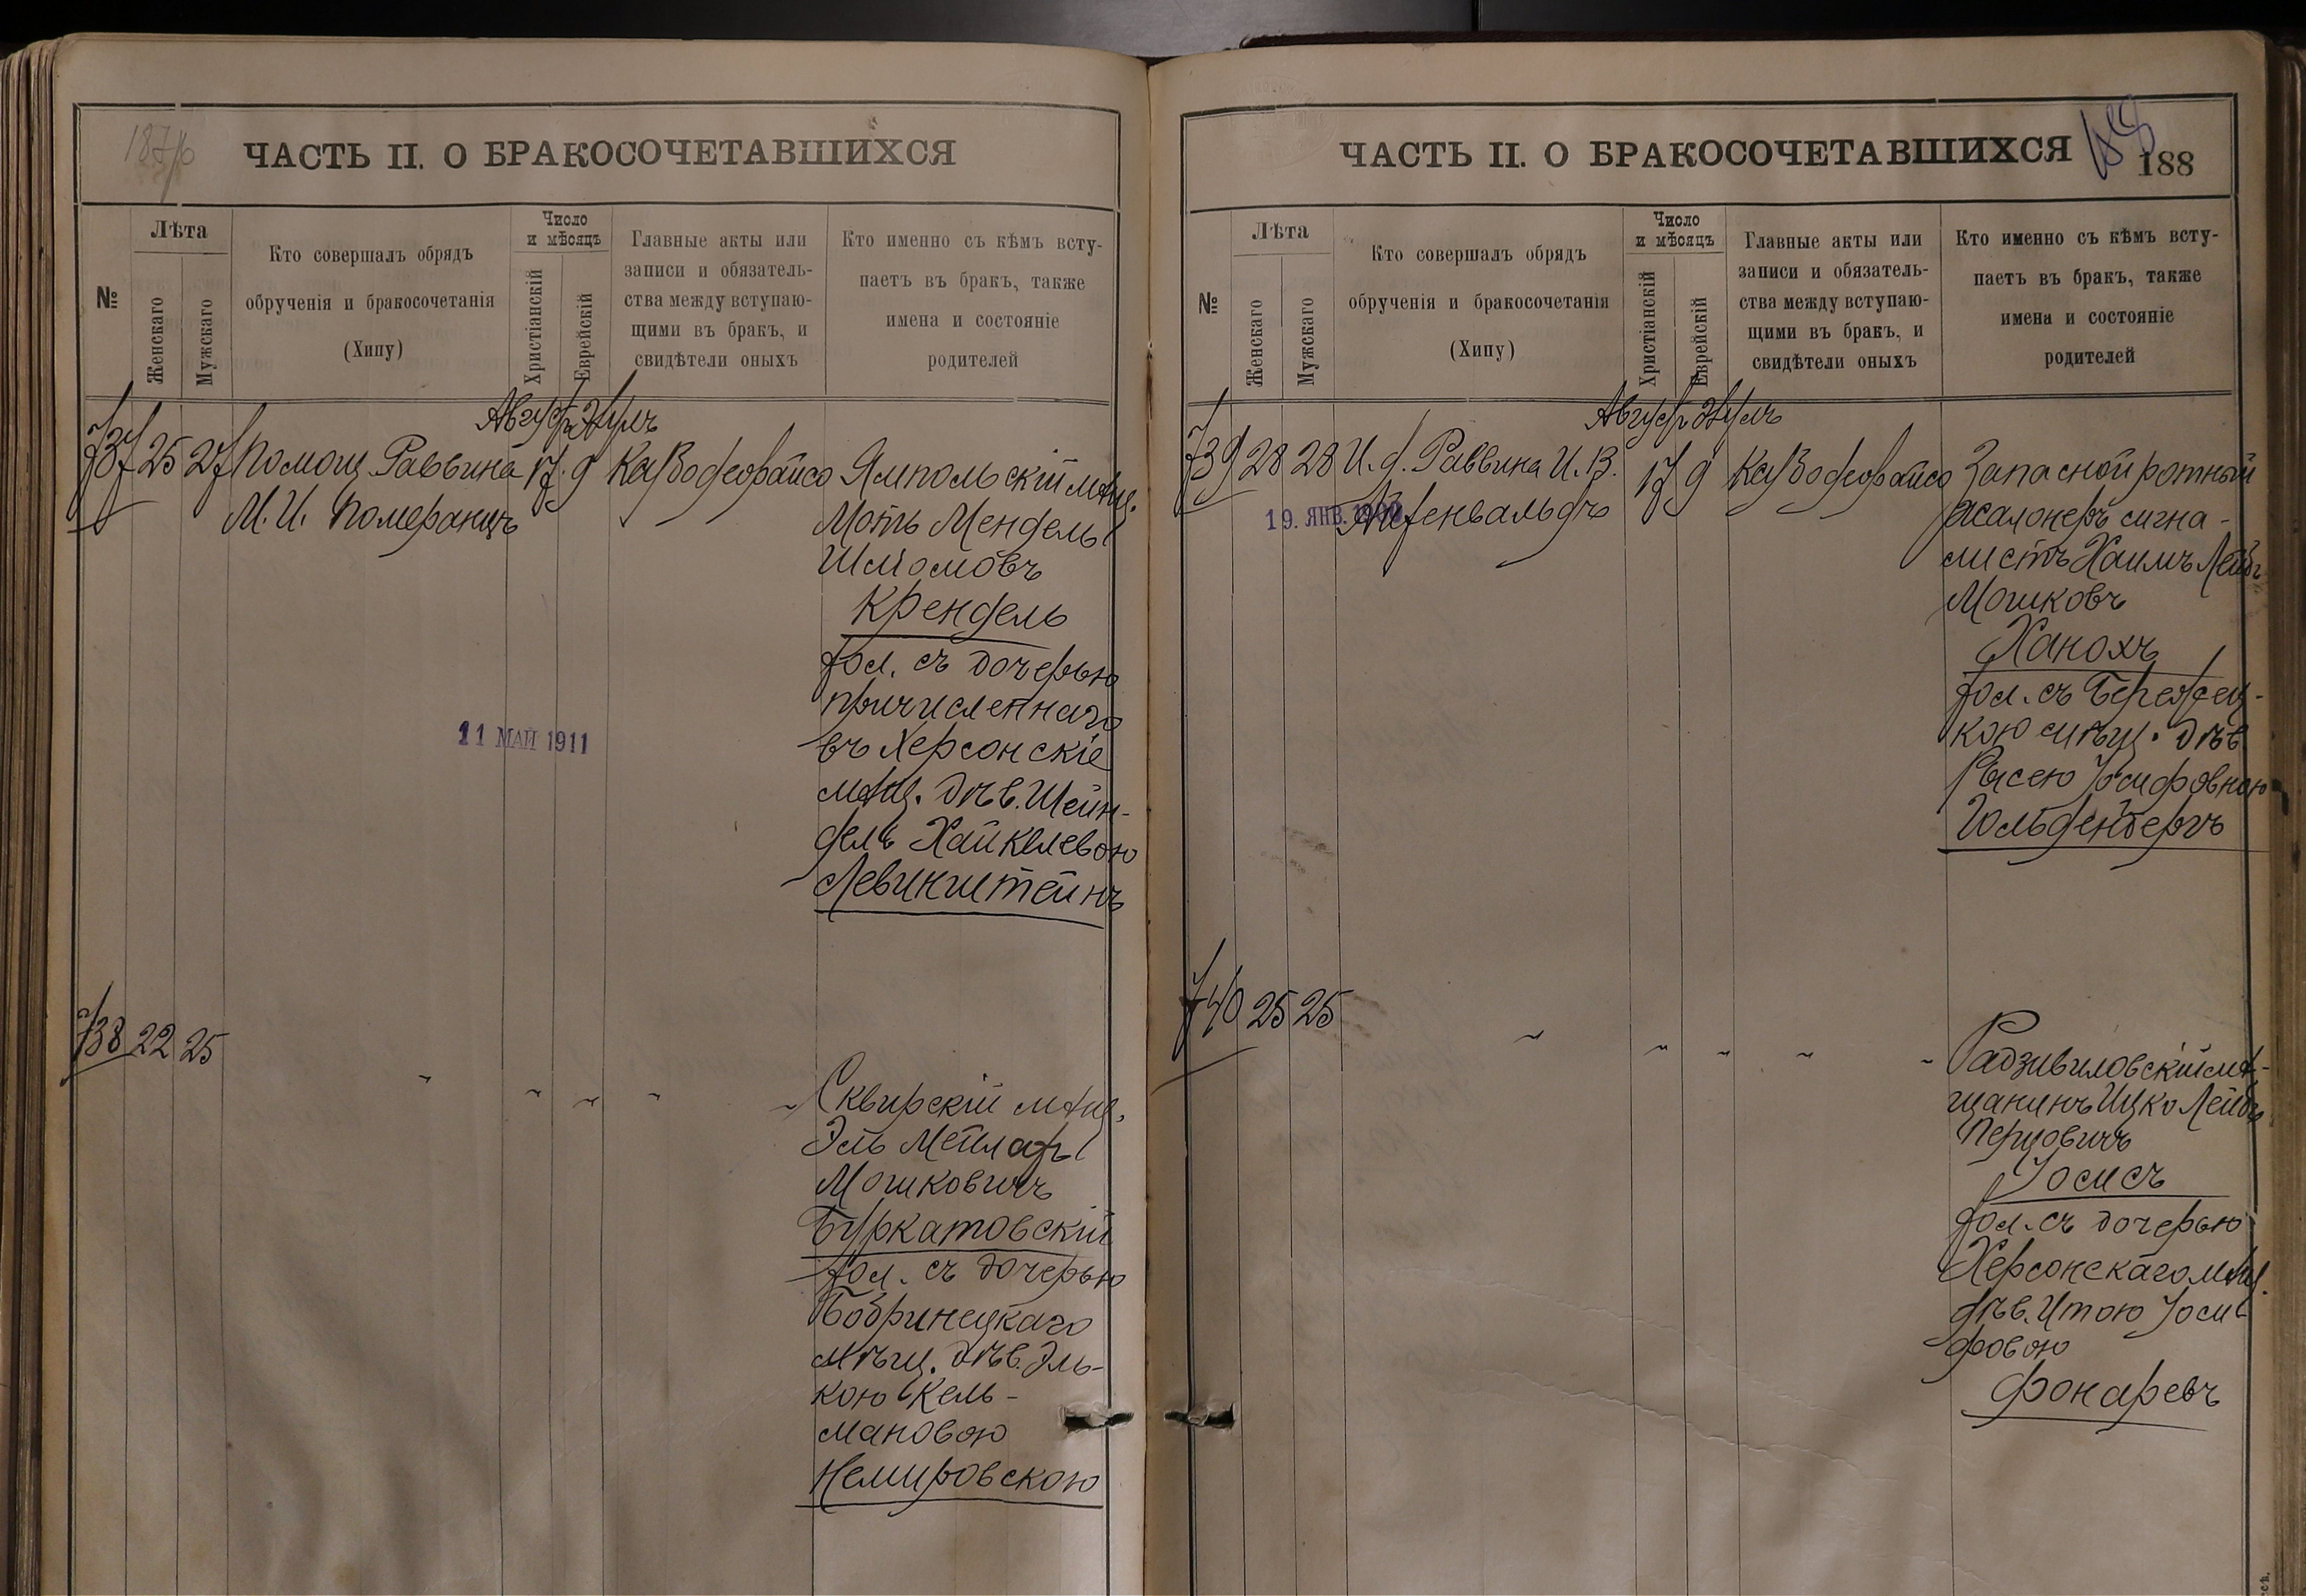 187 об
ЧАСТЬ II. О БРАКОСОЧЕТАВШИХСЯ
№
Лѣта
Женскаго
Мужскаго
Кто совершалъ обрядъ
обрученія и бракосочетанія
(Хипу)
Число
и мѣсяцъ
Христіанскій
Еврейскій
Главные акты или
записи и обязатель-
ства между вступаю-
щими въ бракъ, и
свидѣтели оныхъ
Кто именно съ кѣмъ всту-
паетъ въ бракъ, также
имена и состояніе
родителей
Август Элулъ
737 25 27 Помощ. Раввина 17 9
М. И. Померанцъ
Ямпольскій мѣщ.
Мотль Мендель
Шліомовъ
Крендель
хол. съ дочерью
причисленнаго
въ Херсонскіе
мѣщ. дѣв. Шейн-
дель Хайкелевою
Левинштейнъ
11 МАЙ 1911
738 22 25 " " " "
" Сквирскій мѣщ.
Эль Мейлахъ
Мошковичъ
Буркатовскій
хол. съ дочерью
Бобринецкаго
мѣщ. дѣв. Эль-
кою Кель-
мановою
Немировскою
ЧАСТЬ II. О БРАКОСОЧЕТАВШИХСЯ
188
188
№
Лѣта
Женскаго
Мужскаго
Кто совершалъ обрядъ
обрученія и бракосочетанія
(Хипу)
Число
и мѣсяцъ
Христіанскій
Еврейскій
Главные акты или
записи и обязатель-
ства между вступаю-
щими въ бракъ, и
свидѣтели оныхъ
Кто именно съ кѣмъ всту-
паетъ въ бракъ, также
имена и состояніе
родителей
Август Элулъ
739 28 28 И. д. Раввина И. В. 17 9
19. ЯНВ.
Запасной ротный
сигна-
листъ Хаимъ Лейбъ
Мошковъ
Ханохъ
хол. съ
кою мѣщ. дѣв.
Рысею Іосифовною
Гольденбергъ
740 25 25 " " " "
" Радзивиловскій мѣ-
щанинъ Ицко Лейбъ
Перцовичъ
Іосисъ
хол. съ дочерью
Херсонскаго мѣщ.
дѣв. Итою Іоси-
фовою
Фонаревъ